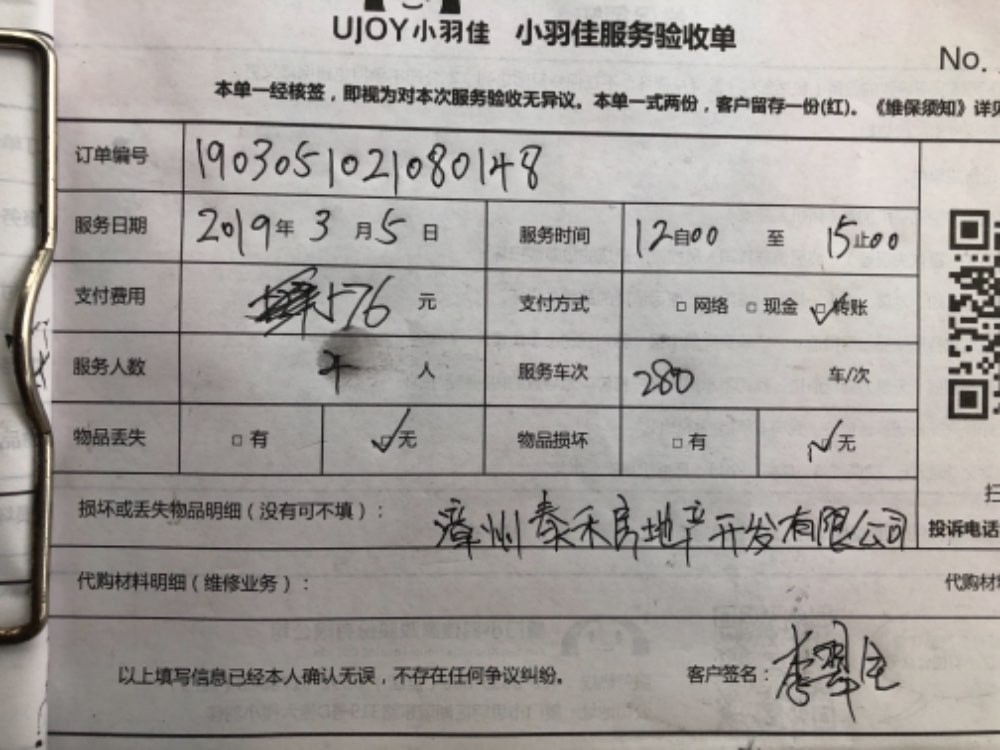 UJOY小羽佳 小羽佳服务验收单
No.
本单一经核签，即视为对本次服务验收无异议。本单一式两份，客户留存一份(红)。《维保须知》详见
订单编号 1903051021080148
服务日期 2019年3月5日 服务时间 12自00 至 15止00
支付费用 576 元 支付方式 □网络 □现金 ☑转账
服务人数 人 服务车次 280 车/次
物品丢失 □有 ☑无 物品损坏 □有 ☑无
损坏或丢失物品明细（没有可不填）： 漳州泰禾房地产开发有限公司
投诉电话
代购材料明细（维修业务）： 代购材
以上填写信息已经本人确认无误，不存在任何争议纠纷。 客户签名：